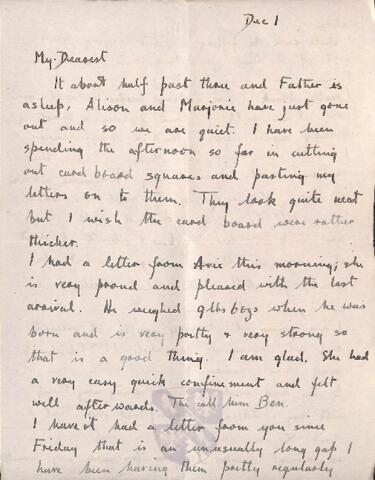 Dec 1
My Dearest
It about half past three and Father is
asleep, Alison and Marjorie have just gone
out and so we are quiet. I have been
spending the afternoon so far in cutting
out card board squares and pasting my
letters on to them. They look quite neat
but I wish the card board were rather
thicker.
I had a letter from Avie this morning; she
is very proud and pleased with the last
arrival. He weighed 9lbs 6ozs when he was
born and is very pretty & very strong so
that is a good thing. I am glad. She had
a very easy quick confinement and felt
well afterwards. The call him Ben.
I have't had a letter from you since
Friday that is an unusually long gap I
have been having them pretty regularly